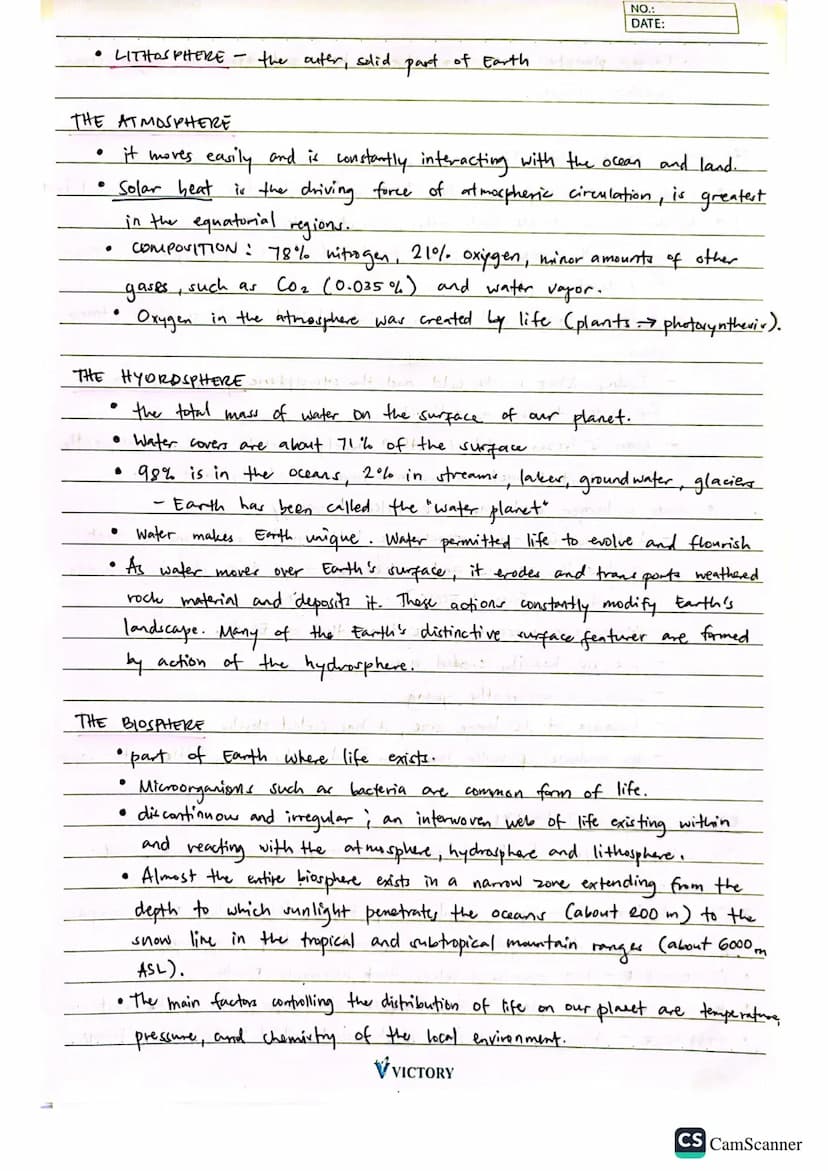 NO.:
DATE:
• LITHOSPHERE - the outer, solid part of Earth
THE ATMOSPHERE
• it moves easily and is constantly interacting with the ocean and land.
• Solar heat is the driving force of atmospheric circulation, is greatest
in the equatorial regions.
• COMPOSITION: 78% nitrogen, 21% oxygen, minor amounts of other
gases, such as CO2 (0.035%) and water vapor.
• Oxygen in the atmosphere was created by life (plants → photosynthesis).
THE HYDROSPHERE
• the total mass of water on the surface of our planet.
• Water covers are about 71% of the surface
• 98% is in the oceans, 2% in streams, lakes, groundwater, glaciers
- Earth has been called the "water planet"
• Water makes Earth unique. Water permitted life to evolve and flourish
• As water moves over Earth's surface, it erodes and transports weathered
rock material and deposits it. These actions constantly modify Earth's
landscape. Many of the Earth's distinctive surface features are formed
by action of the hydrosphere.
THE BIOSPHERE
• part of Earth where life exists.
• Microorganisms such as bacteria are common form of life.
• discontinuous and irregular; an interwoven web of life existing within
and reacting with the atmosphere, hydrosphere and lithosphere.
• Almost the entire biosphere exists in a narrow zone extending from the
depth to which sunlight penetrates the oceans (about 200 m) to the
snow line in the tropical and subtropical mountain ranges (about 6000 m
ASL).
• The main factors controlling the distribution of life on our planet are temperature,
pressure, and chemistry of the local environment.
VICTORY
CS CamScanner